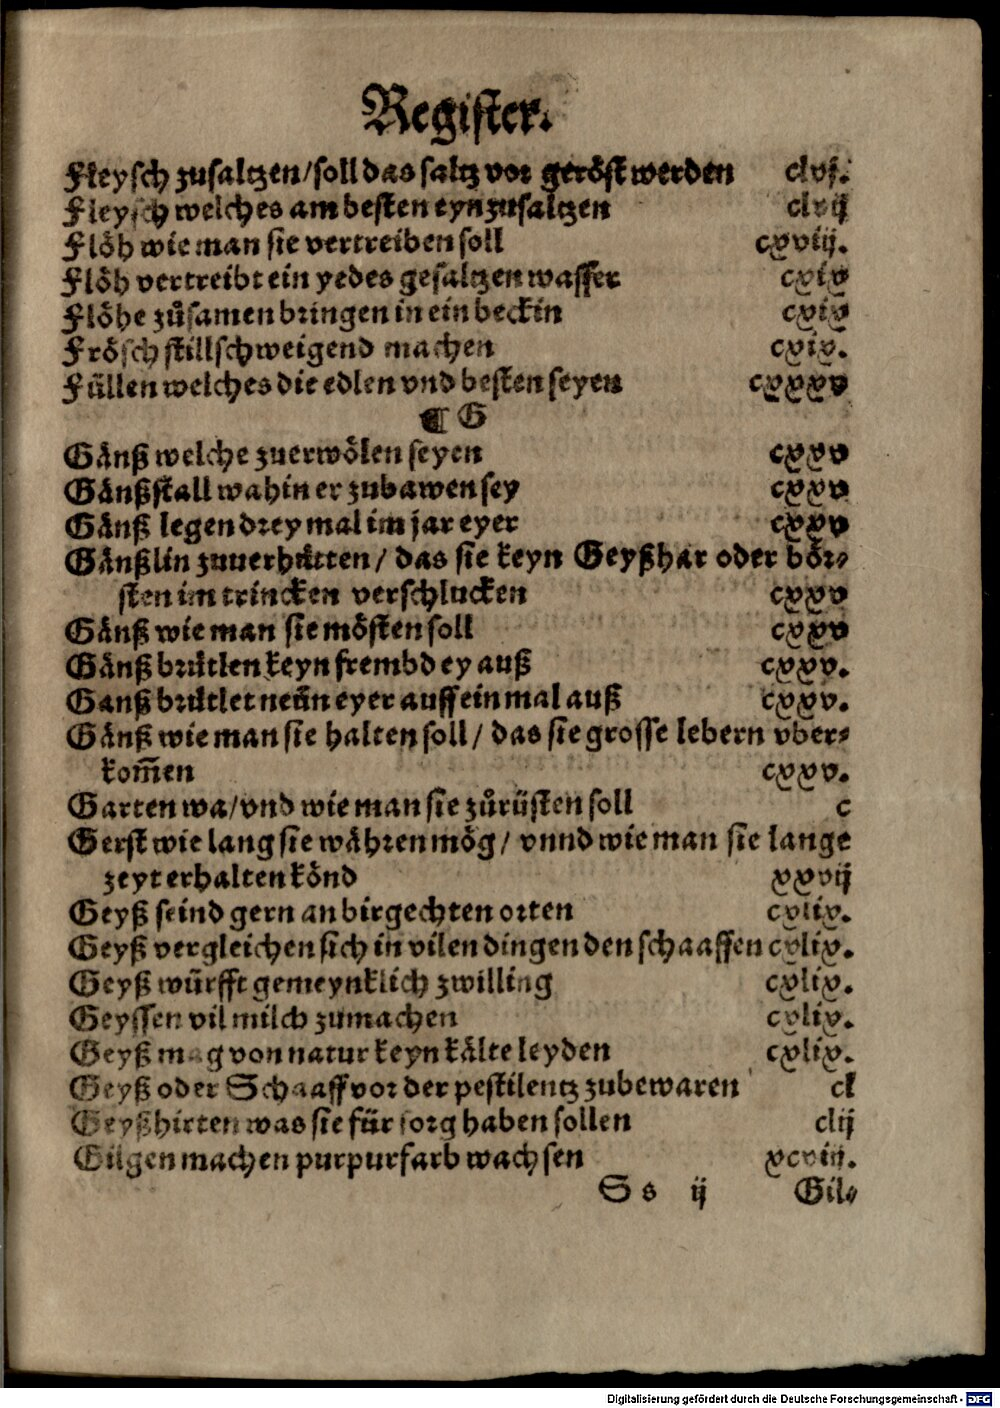 Register.
Fleysch zusaltzen/soll das saltz vor geröst werden clvj.
Fleysch welches am besten eynzusaltzen clvij
Flöh wie man sie vertreiben soll cxviij.
Flöh vertreibt ein yedes gesaltzen wasser cxix
Flöhe zůsamen bringen in ein beckin cxix
Frösch stillschweigend machen cxix.
Füllen welches die edlen vnd besten seyen cxxxv
¶ G
Gänß welche zuerwölen seyen cxxv
Gänßstall wahin er zubawen sey cxxv
Gänß legen drey mal im jar eyer cxxv
Gänßlin zuuerhütten/ das sie keyn Geyßhar oder bör⸗
sten im trincken verschlucken cxxv
Gänß wie man sie mösten soll cxxv
Gänß brütlen keyn frembd ey auß cxxv.
Ganß brütlet neün eyer auff ein mal auß cxxv.
Gänß wie man sie halten soll/ das sie grosse lebern vber⸗
kom̄en cxxv.
Garten wa/vnd wie man sie zůrüsten soll c
Gerst wie lang sie währen mög/ vnnd wie man sie lange
zeyt erhalten könd xxvij
Geyß seind gern an birgechten orten cxlix.
Geyß vergleichen sich in vilen dingen den schaaffen cxlix.
Geyß würfft gemeynklich zwilling cxlix.
Geyssen vil milch zumachen cxlix.
Geyß mag von natur keyn kälte leyden cxlix.
Geyß oder Schaaff vor der pestilentz zubewaren cl
Geyßhirten was sie für sorg haben sollen clij
Gilgen machen purpurfarb wachsen xcviij.
S s ij Gil⸗
Digitalisierung gefördert durch die Deutsche Forschungsgemeinschaft - DFG